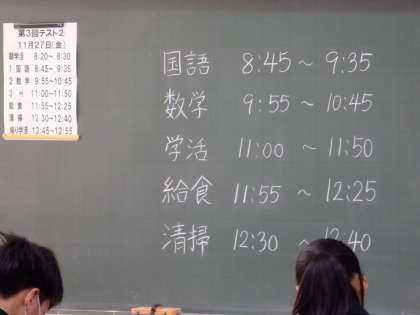 第3回テスト2
11月27日(金)
朝学活 8:20～ 8:30
1 国語 8:45～ 9:35
2 数学 9:55～10:45
3 H 11:00～11:50
給食 11:55～12:25
清掃 12:30～12:40
帰り学活 12:45～12:55
国語 8:45 ～ 9:35
数学 9:55 ～ 10:45
学活 11:00 ～ 11:50
給食 11:55 ～ 12:25
清掃 12:30 ～ 12:40